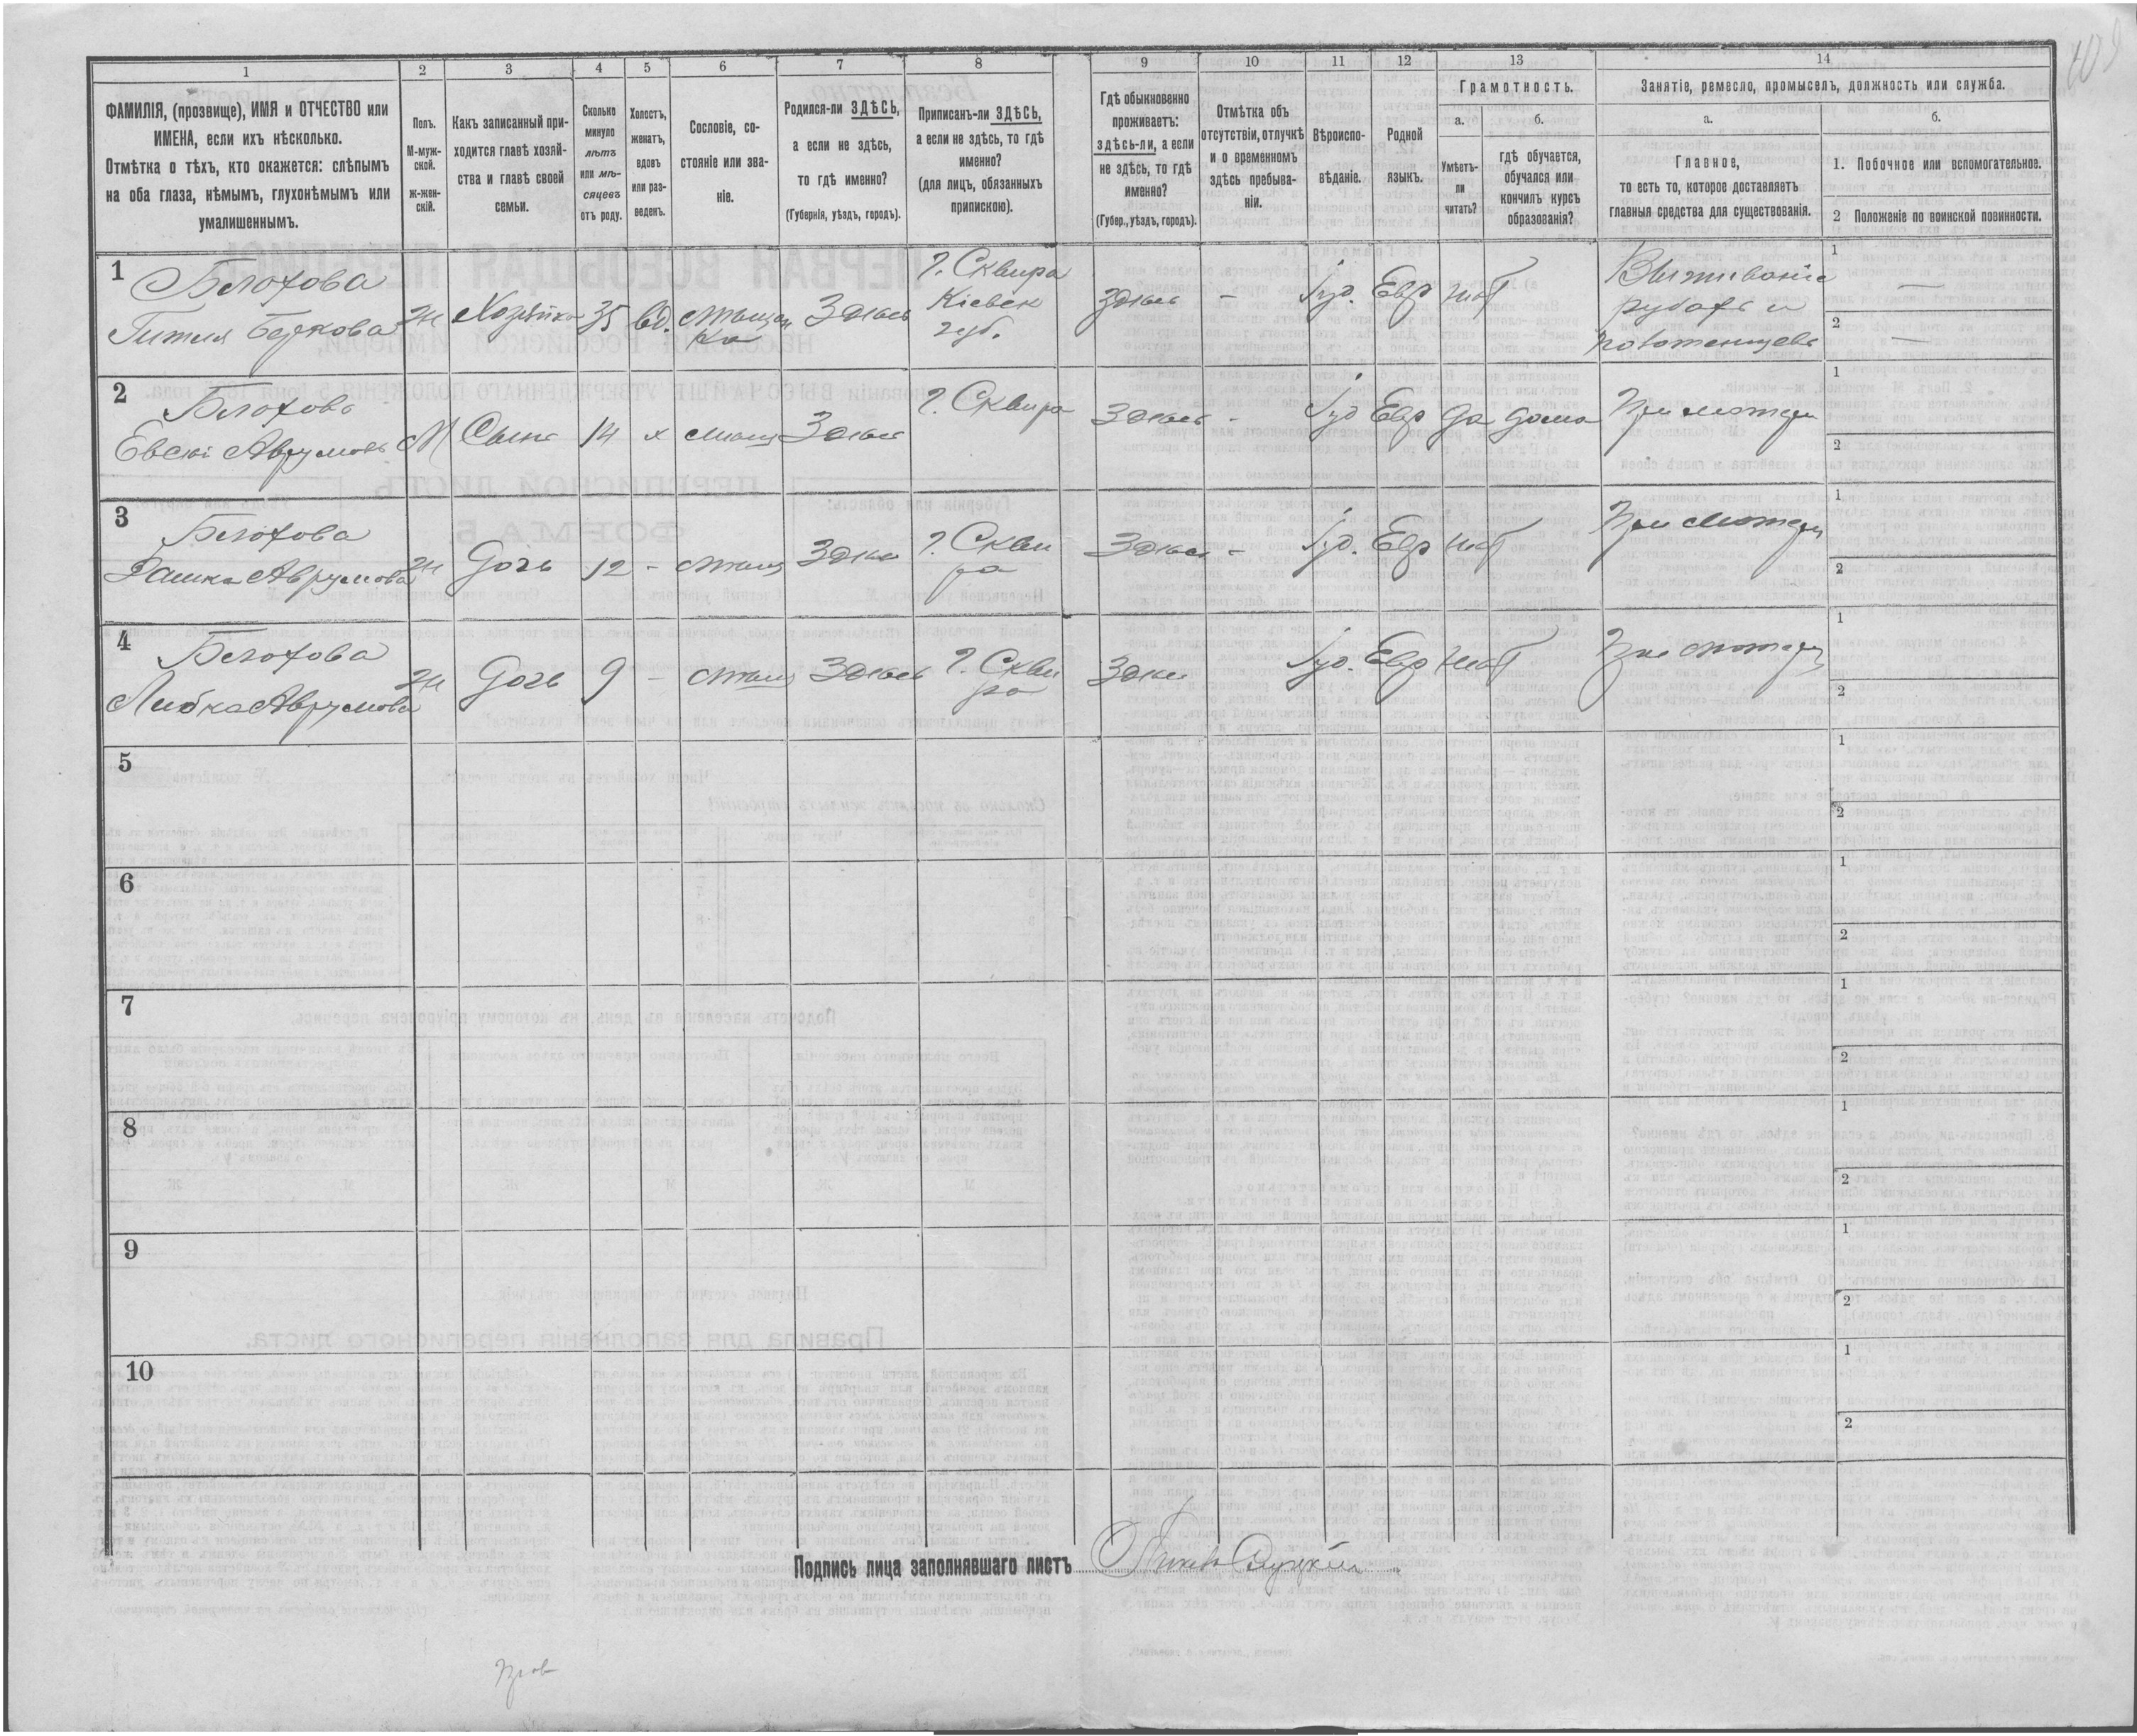 1 2 3 4 5 6 7 8 9 10 11 12 13 14
ФАМИЛІЯ, (прозвище), ИМЯ и ОТЧЕСТВО или
ИМЕНА, если ихъ нѣсколько.
Отмѣтка о тѣхъ, кто окажется: слѣпымъ
на оба глаза, нѣмымъ, глухонѣмымъ или
умалишеннымъ.
Полъ.
М-муж-
ской.
ж-жен-
скій.
Какъ записанный при-
ходится главѣ хозяй-
ства и главѣ своей
семьи.
Сколько
минуло
лѣтъ
или мѣ-
сяцевъ
отъ роду.
Холостъ,
женатъ,
вдовъ
или раз-
веденъ.
Сословіе, со-
стояніе или зва-
ніе.
Родился-ли ЗДѢСЬ,
а если не здѣсь,
то гдѣ именно?
(Губернія, уѣздъ, городъ).
Приписанъ-ли ЗДѢСЬ,
а если не здѣсь, то гдѣ
именно?
(для лицъ, обязанныхъ
припискою).
Гдѣ обыкновенно
проживаетъ:
здѣсь-ли, а если
не здѣсь, то гдѣ
именно?
(Губер., уѣздъ, городъ).
Отмѣтка объ
отсутствіи, отлучкѣ
и о временномъ
здѣсь пребыва-
ніи.
Вѣроиспо-
вѣданіе.
Родной
языкъ.
Грамотность.
а.
Умѣетъ-
ли
читать?
б.
гдѣ обучается,
обучался или
кончилъ курсъ
образованія?
Занятіе, ремесло, промыселъ, должность или служба.
а.
Главное,
то есть то, которое доставляетъ
главныя средства для существованія.
б.
1. Побочное или вспомогательное.
2 Положеніе по воинской повинности.
1
Белохова
Гитля Беркова
ж Хозяйка 35 вд. мѣщан
ка
Здѣсь
г. Сквира
Кіевск
губ.
здѣсь - Іуд. Евр нѣт
Вышиваніе
рубахъ и
полотенцевъ
1 —
2 —
2
Белохова
Евсій Аврумовъ
М Сынъ 14 х мѣщ Здѣсь г. Сквира Здѣсь - Іуд Евр да дома При матери
1
2
3
Белохова
Рашка Аврумова
ж Дочь 12 - мѣщ Здѣсь г. Скви
ра
Здѣсь - Іуд. Евр нѣт При матери
1
2
4
Белохова
Либка Аврумова
ж Дочь 9 - мѣщ Здѣсь г. Скви
ра
Здѣсь Іуд. Евр нѣт При матери
1
2
5
1
2
6
1
2
7
1
2
8
1
2
9
1
2
10
1
2
Подпись лица заполнявшаго листъ